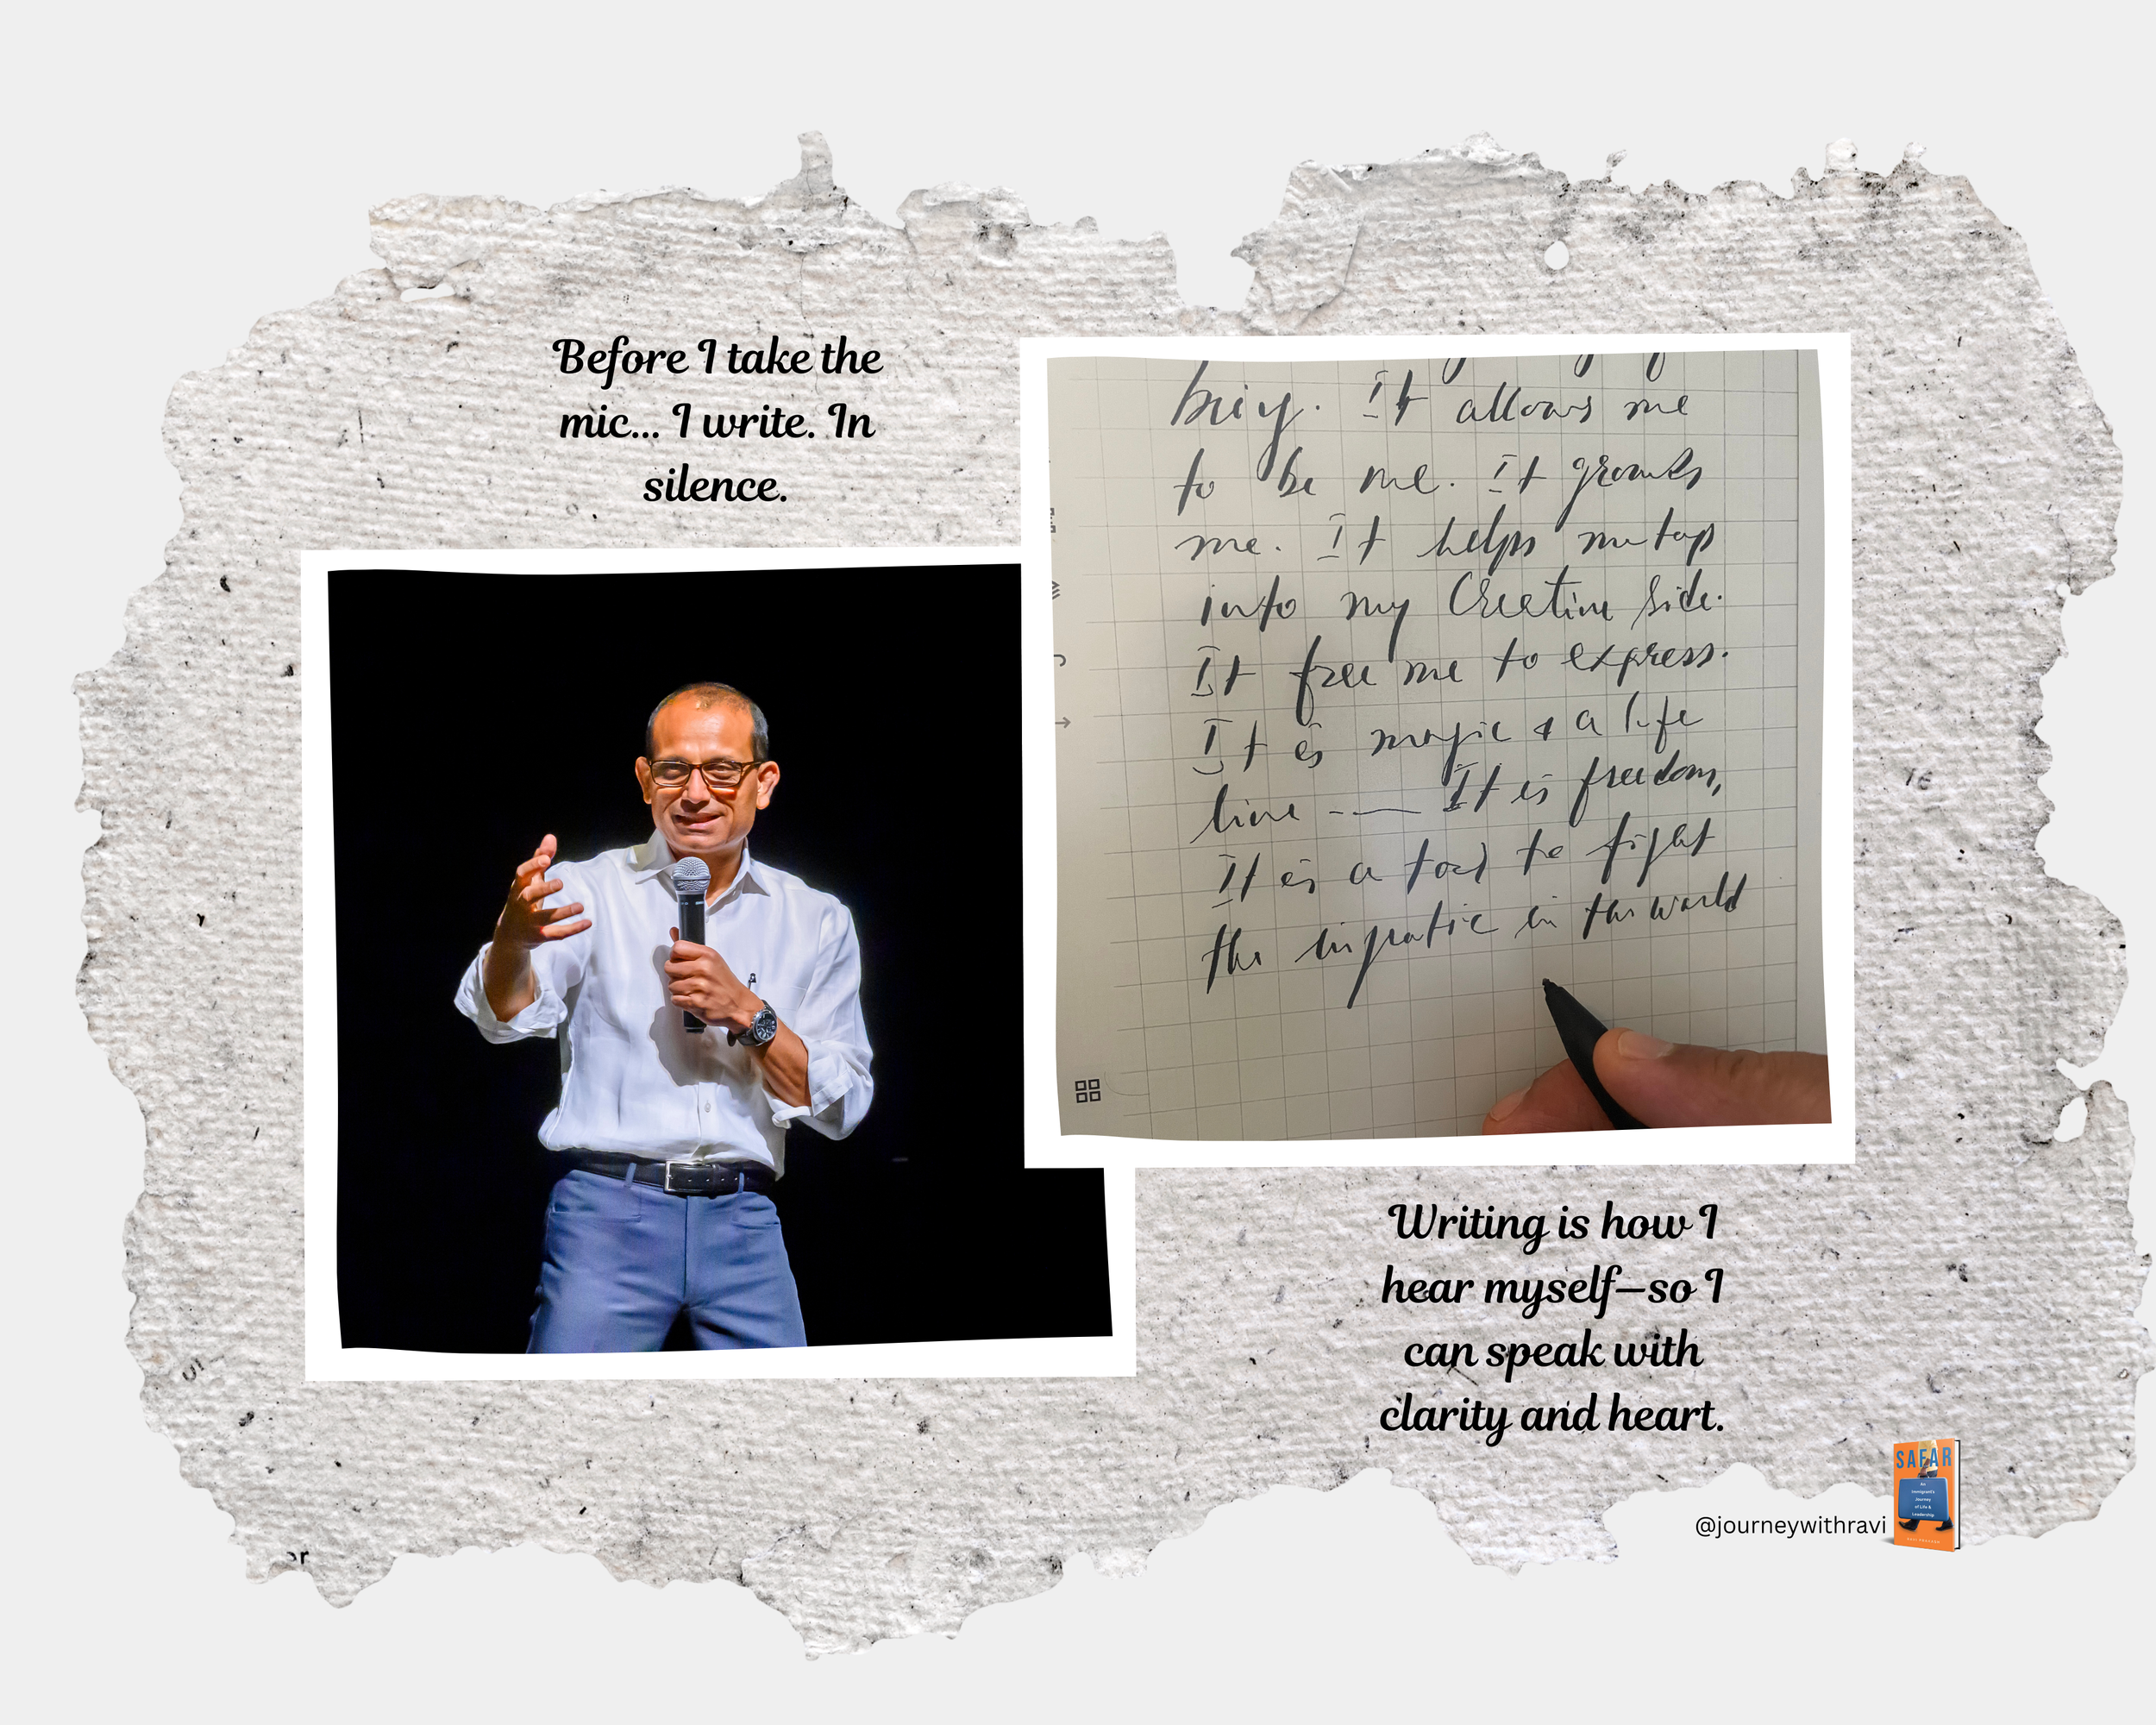 Before I take the
mic... I write. In
silence.
It allows me
to be me. It grounds
me. It helps me tap
into my Creative side.
It free me to express.
It is magic & a life
line --- It is freedom,
It is a tool to fight
the in the world
Writing is how I
hear myself—so I
can speak with
clarity and heart.
@journeywithravi
SAFAR
An
Immigrant's
Journey
of Life &
Leadership